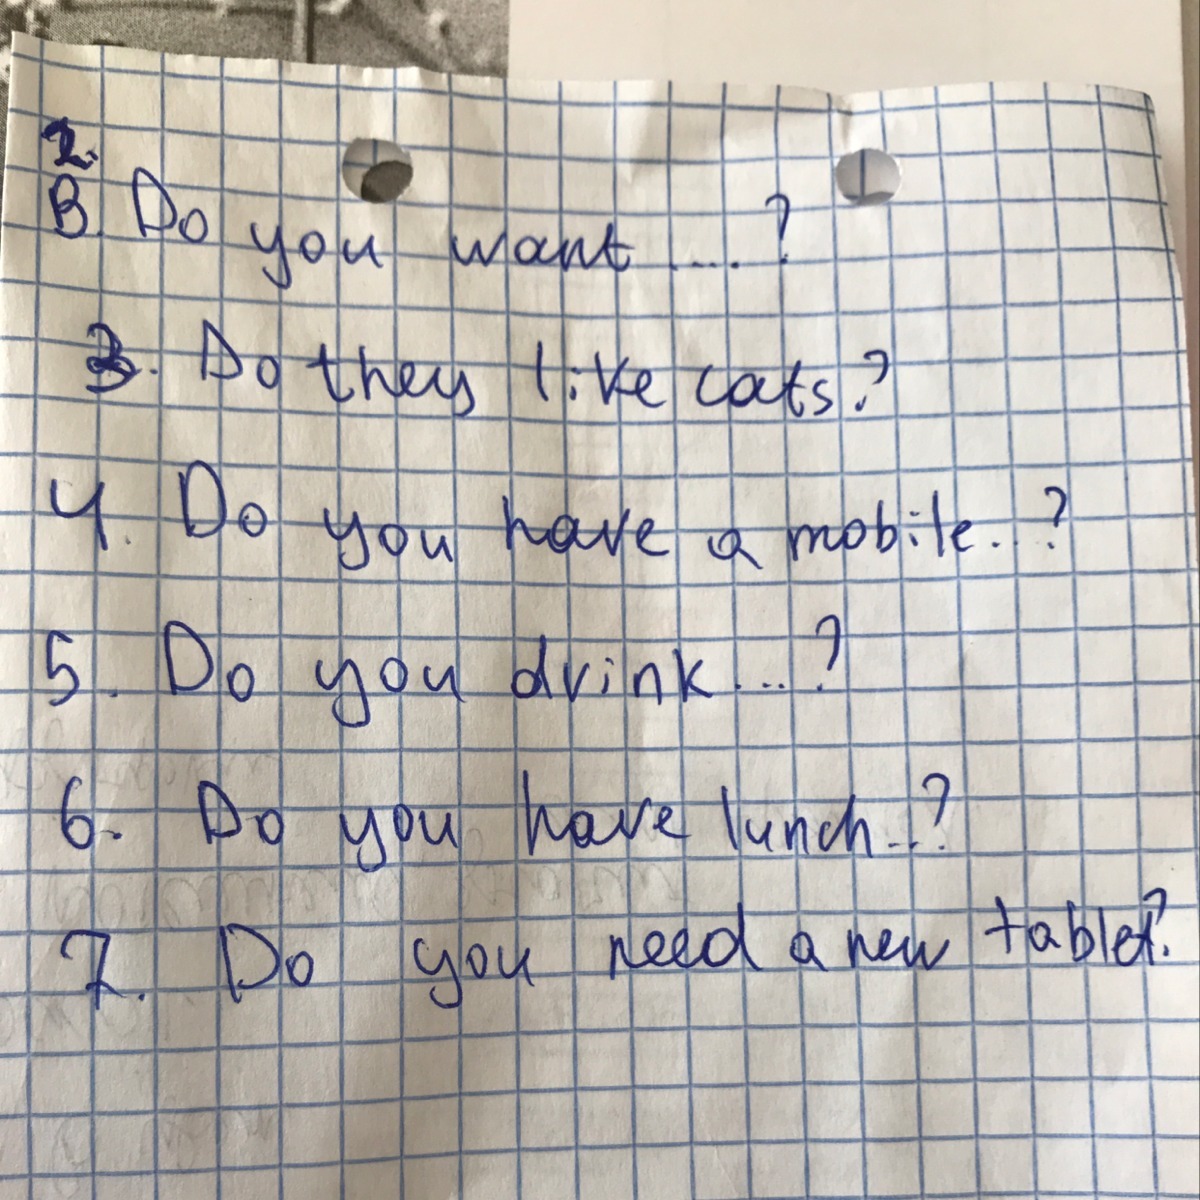 2.
B. Do you want ....?
3. Do they like cats?
4. Do you have a mobile..?
5. Do you drink...?
6. Do you have lunch..?
7. Do you need a new tablet?